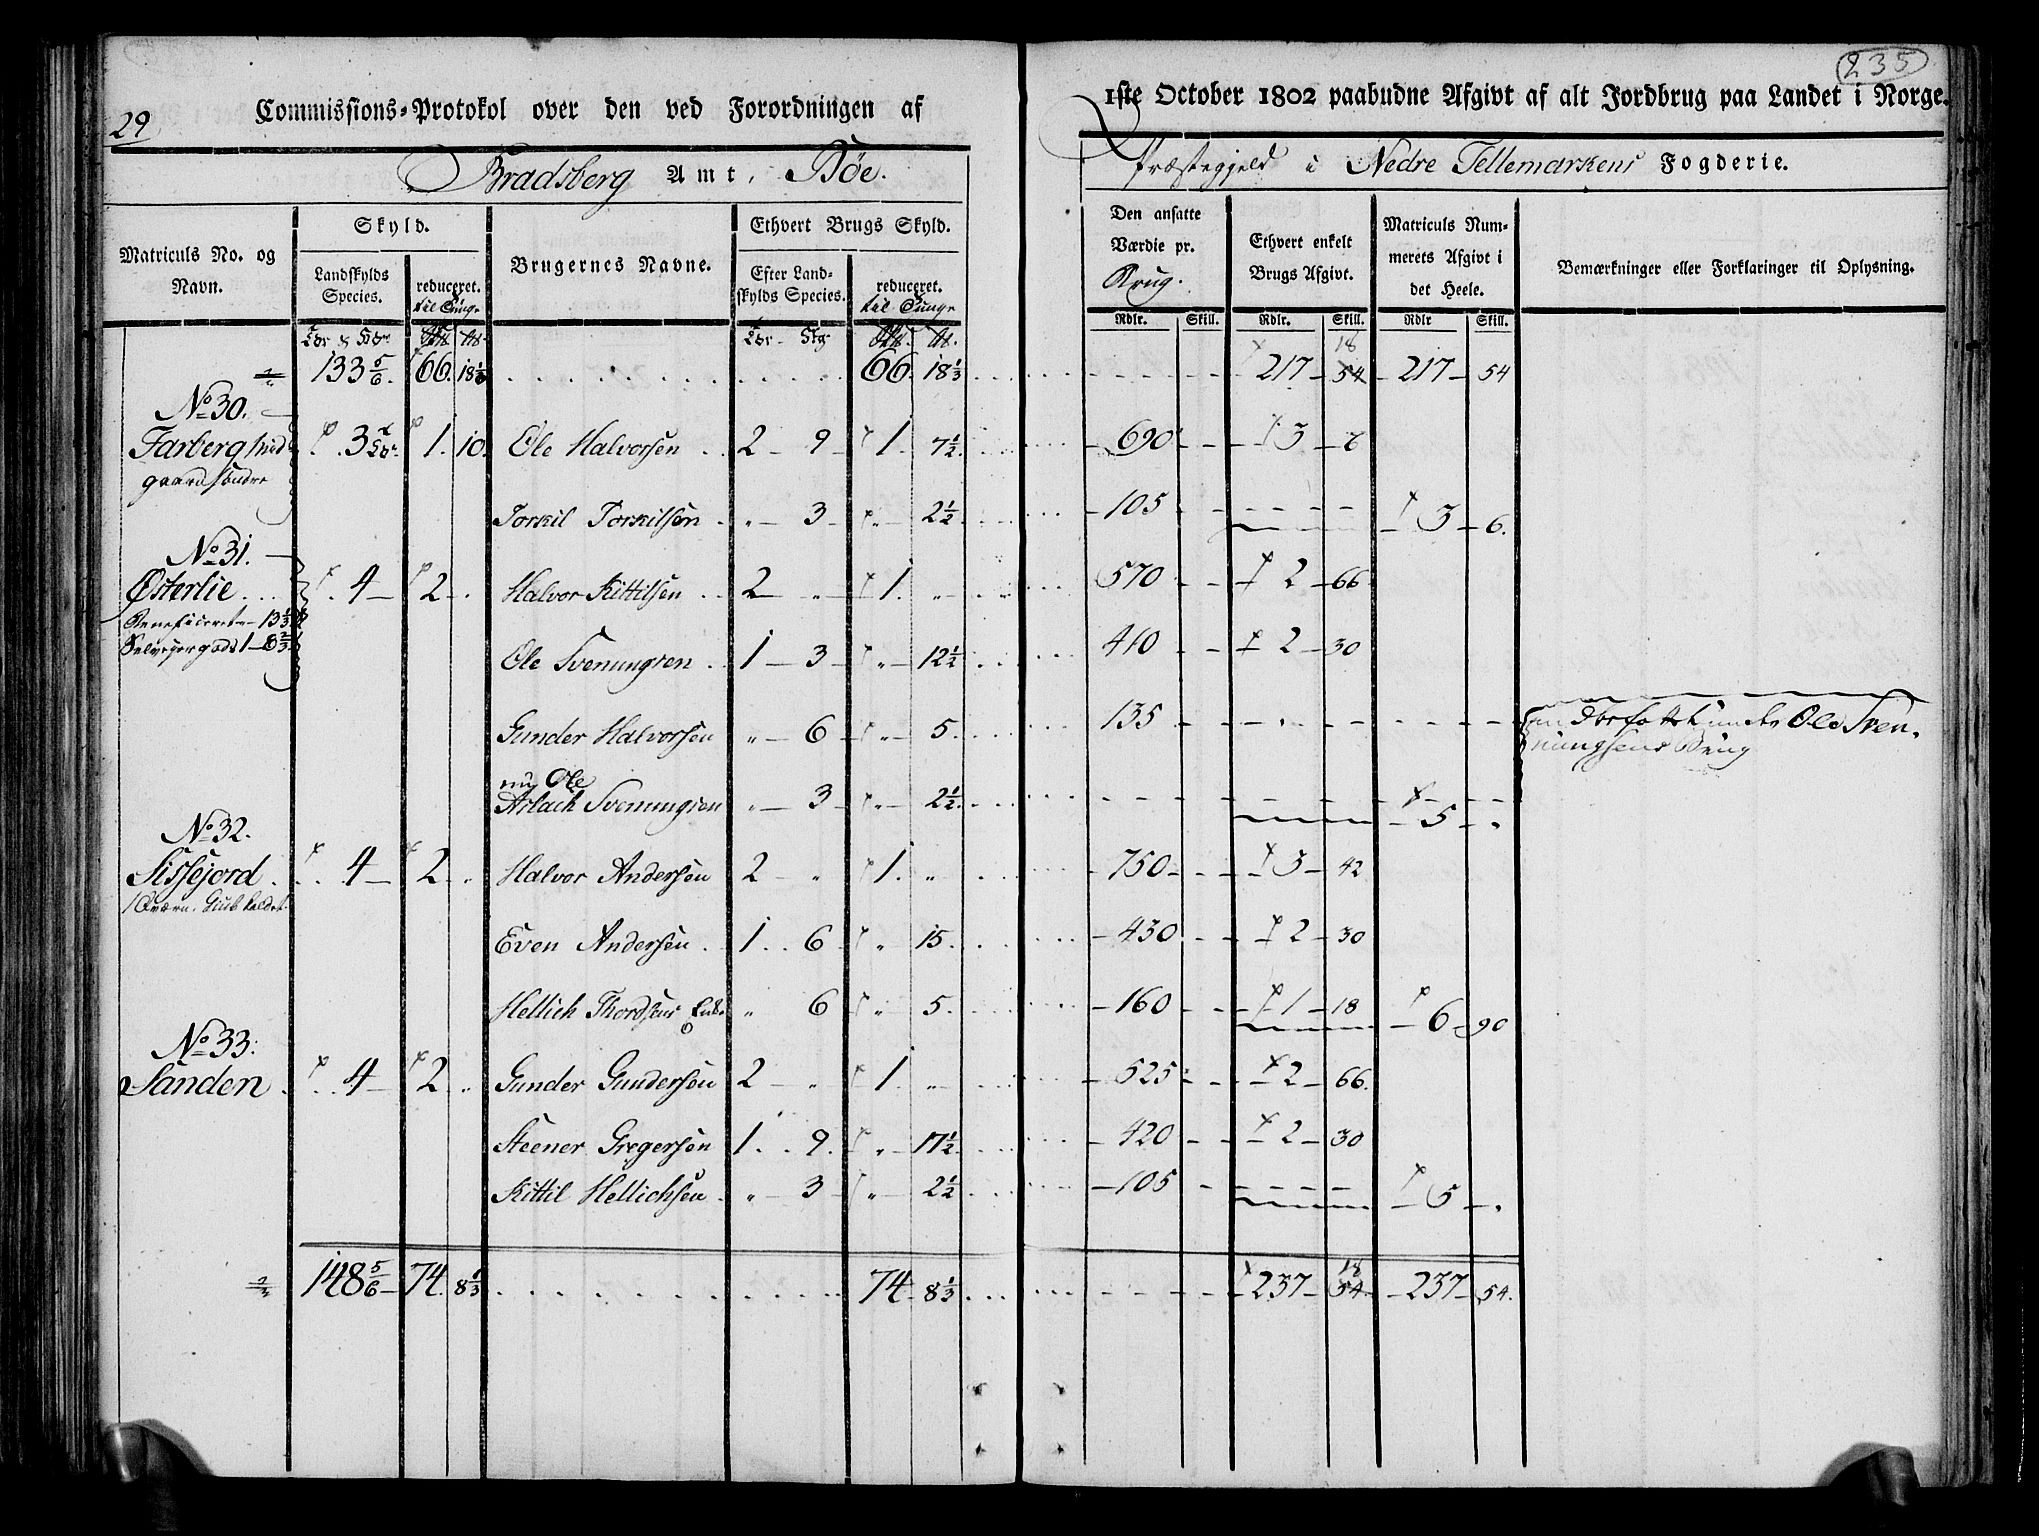 235
29
Commissions-Protokol over den ved Forordningen af 1ste October 1802 paabudne Afgivt af alt Jordbrug paa Landet i Norge.
Bradsberg Amt, Böe. Præstegjeld i Nedre Tellemarkens Fogderie.
Matriculs No. og Navn.
Skyld.
Landskylds Species.
reduceret. til Tunge
Brugernes Navne.
Ethvert Brugs Skyld.
Efter Landskylds Species.
reduceret. til Tunge
Den ansatte Værdie pr. Brug.
Ethvert enkelt Brugs Afgivt.
Matriculs Nummerets Afgivt i det Heele.
Bemærkninger eller Forklaringer til Oplysning.
Rdlr. Skill. Rdlr. Skill. Rdlr Skill.
133 5/6. 66. 18 1/3 66. 18 1/3 217 18 54 217 54
No 30.
Farberg mid 3 1. 10. Ole Halvorsen 2 9 1. 7 1/2 690 3 6
gaard söndre
Torkil Torkilsen 3 2 1/2 105 3 6.
No 31.
Østerlie 4 2 Halvor Kittilsen 2 1. 570 2 66
Beneficeret 13 1/3
Selveyergods 1 6 2/3 Ole Svenungsen 1 3 12 1/2 410 2 30
Gunder Halvorsen 6 5. 135 under Ole Sven
nungsens Brug
nu Ole
Aslach Svenungsen 3 2 1/2 5
No 32.
Sissejord 4 2 Halvor Andersen 2 1. 750 3 42
1 Qværn,
Even Andersen 1 6 15. 430 2 30
Hellich Thordsens Enke 6 5. 160 1 18 6 90
No 33.
Sanden 4 2 Gunder Gundersen 2 1. 525 2 66.
Steener Gregersen 1. 9. 17 1/2 420 2 30
Kittil Hellichsen 3 2 1/2 105 5
148 5/6 74. 8 1/3 74 8 1/3 237 18 54 237 54.